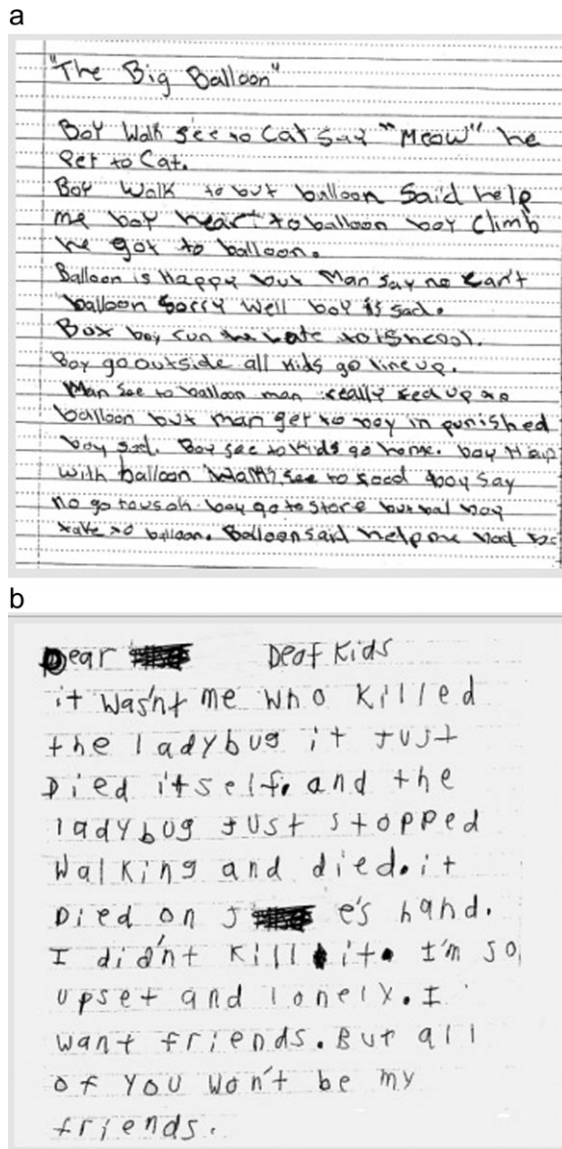 a
"The Big Balloon"
Boy Walk see to Cat say "Meow" he
Pet to Cat.
Boy Walk to but balloon Said help
me boy heart to balloon boy climb
he got to balloon.
Balloon is Happy but Man say no can't
balloon sorry well boy is sad.
boy run late to
Boy go outside all kids go line up.
Man see to balloon man really
balloon but man get to boy in punished
boy sad. Boy see to kids go home. boy
with balloon walk see to boy say
no go boy go to store but boy
take to balloon. Balloon said help me
b
Dear Deaf Kids
it wasn't me who killed
the ladybug it just
Died itself. and the
ladybug just stopped
walking and died. it
Died on J e's hand.
I didn't kill it. I'm so
upset and lonely. I
want friends. But all
of you won't be my
friends.